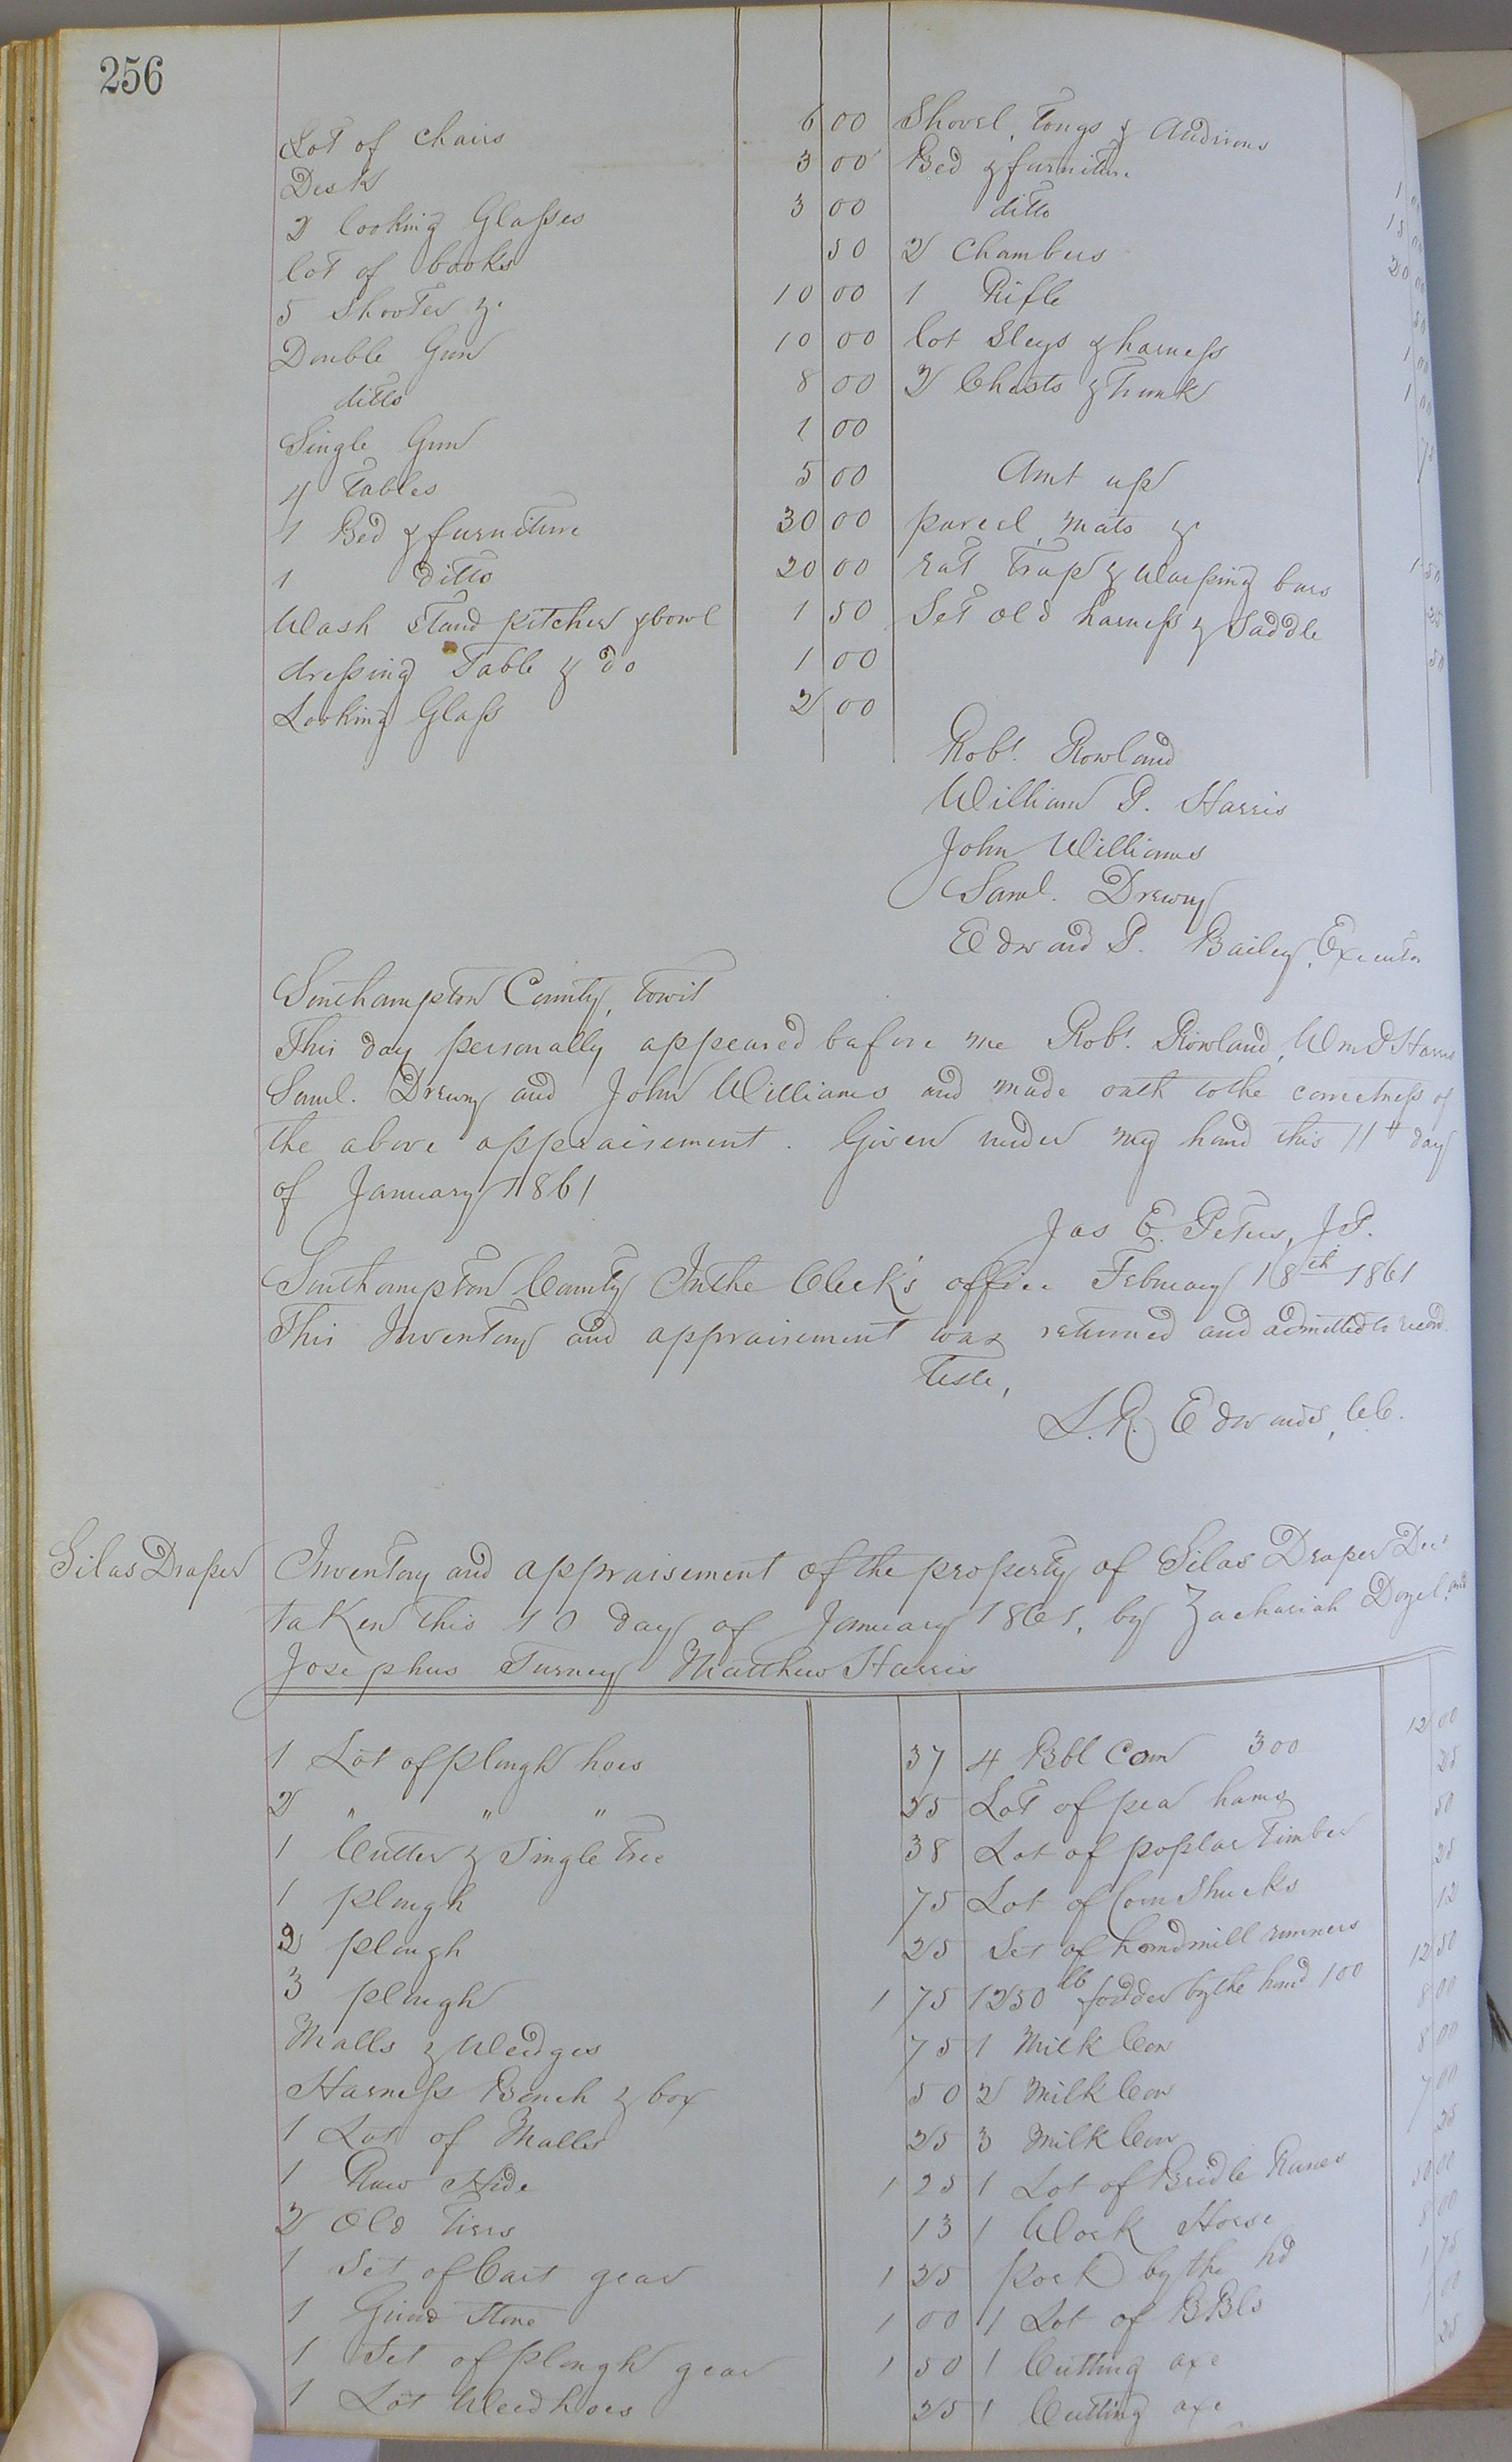 256
Lot of Chairs 6 00 Shovel, tongs & Andirons 1
Desk 3 00 Bed & furniture 15
2 looking Glasses 3 00 ditto 20
lot of books 50 2 Chambers 50
5 Shooter &c 10 00 1 Rifle 1
Double Gun 10 00 lot Sleys & harness 1
ditto 8 00 2 Chests & Trunk 75
Single Gun 1 00
4 Tables 5 00 Amt up
1 Bed & furniture 30 00 parcel mats &c 1 50
1 ditto 20 00 rat trap & Warping bars 25
Wash Stand pitcher & bowl 1 50 Set old harness & Saddle 50
dressing Table & do 1 00
Looking Glass 2 00
Robt. Rowland
William P. Harris
John Williams
Saml. Drewry
Edward P. Bailey, Executor
Southampton County, towit
This day personally appeared before me Robt. Rowland, Wm P Harris
Saml. Drewry and John Williams and made oath to the correctness of
the above appraisement. Given under my hand this 11th day
of January 1861
Jas E. Peters, J.P.
Southampton County In the Clerk's office February 18th 1861
This Inventory and appraisement was returned and admitted to record.
Teste,
L. R. Edwards, C.C.
Silas Draper
Inventory and appraisement of the property of Silas Draper Decd
taken this 10 day of January 1861, by Zachariah and
Josephus Turner Matthew Harris
1 Lot of plough hoes 37 4 Bbl Corn 300 12 00
2 " " " 25 Lot of pea hams 25
1 Cutter & Single Tree 38 Lot of poplar Timber 50
1 plough 75 Lot of Corn Shucks 25
2 plough 25 Set of handmill runners 12
3 plough 1 75 1250 lb fodder by the hund 100 12 50
Malls & Wedges 75 1 Milk Cow 8 00
Harness Bench & box 50 2 Milk Cow 8 00
1 Lot of Malls 25 3 Milk Cow 7 00
1 Raw Hide 1 25 1 Lot of Bridle Ranes 25
2 Old Tiers 13 1 Work Horse 50 00
1 Set of Cart gear 1 25 Pork by the hd 8 00
1 Grind Stone 1 00 1 Lot of BBls 1 75
1 Set of plough gear 1 50 1 Cutting axe 1 00
1 Lot Weed hoes 25 1 Cutting axe 25